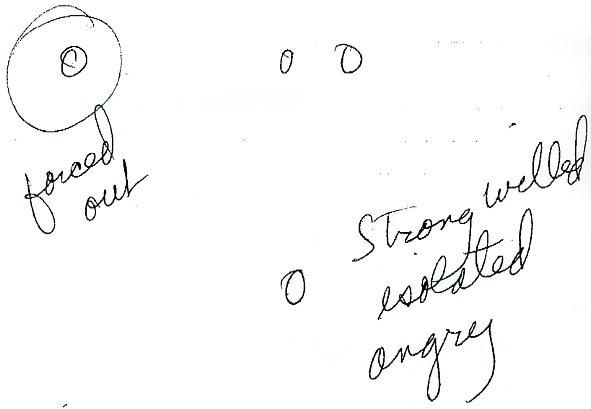 forced
out
Strong willed
isolated
angry